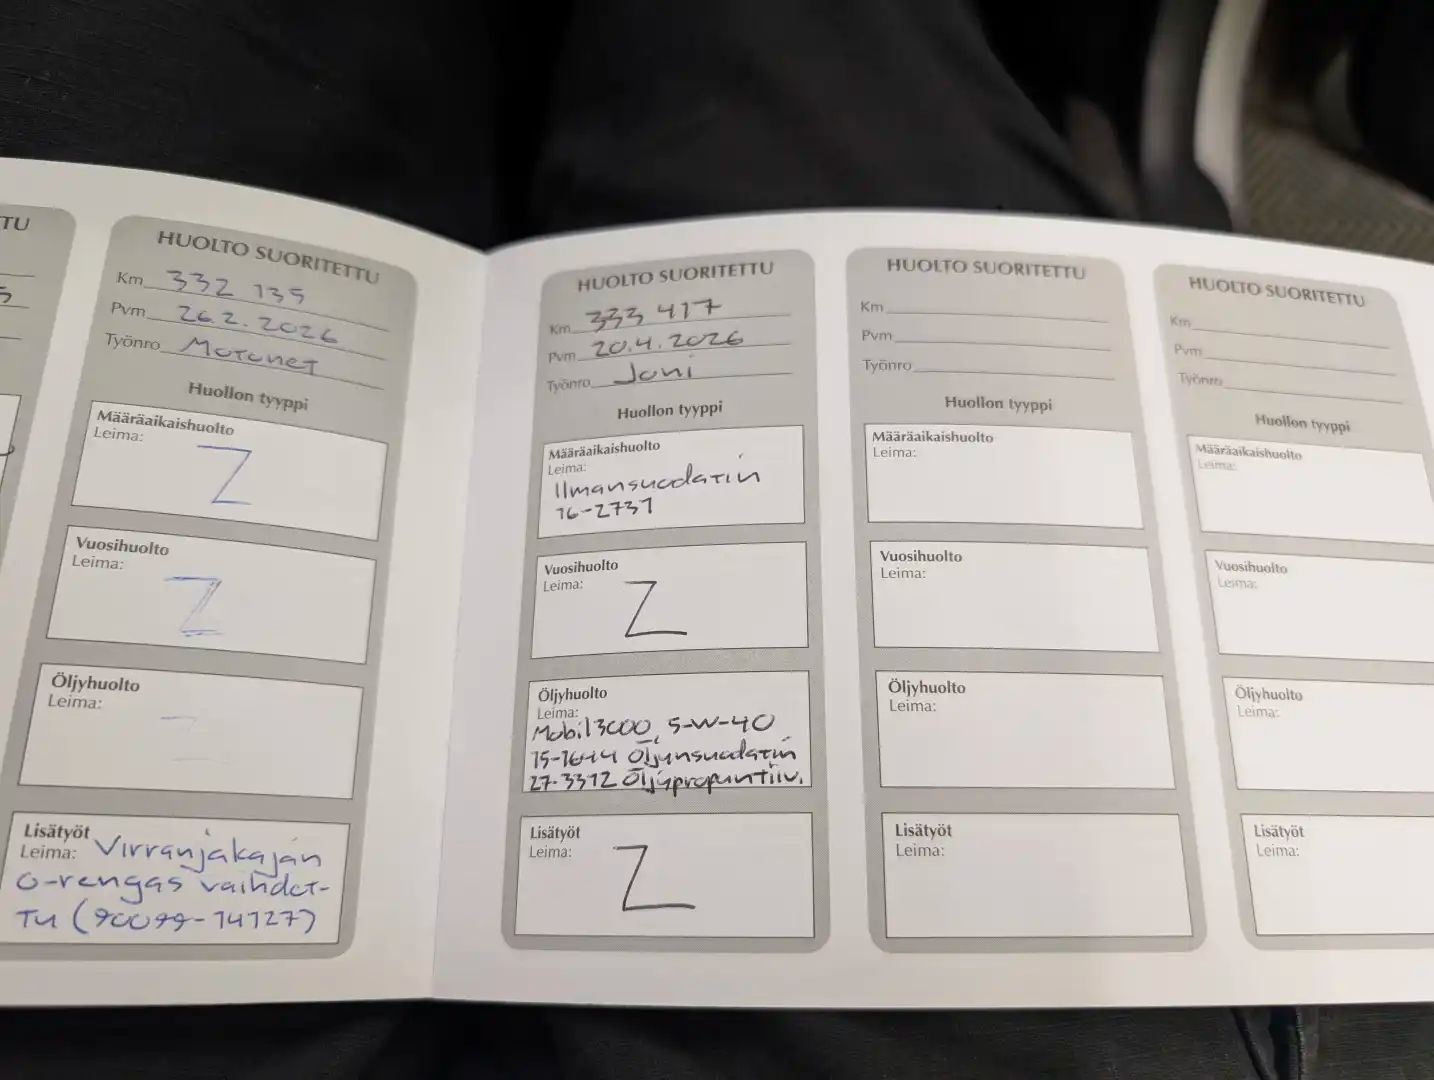 TU
HUOLTO SUORITETTU
Km 332 135
Pvm 26.2.2026
Työnro Motonet
Huollon tyyppi
Määräaikaishuolto
Leima:
Z
Vuosihuolto
Leima:
Z
Öljyhuolto
Leima:
Lisätyöt
Leima: Virranjakajan
O-rengas vaihdet-
tu (90099-14127)
HUOLTO SUORITETTU
Km 333 417
Pvm 20.4.2026
Työnro Joni
Huollon tyyppi
Määräaikaishuolto
Leima:
Ilmansuodatin
16-2731
Vuosihuolto
Leima:
Z
Öljyhuolto
Leima:
Mobil 3000, 5-W-40
15-1644 Öljynsuodatin
27-3312 Öljypropuntiiv.
Lisätyöt
Leima:
Z
HUOLTO SUORITETTU
Km
Pvm
Työnro
Huollon tyyppi
Määräaikaishuolto
Leima:
Vuosihuolto
Leima:
Öljyhuolto
Leima:
Lisätyöt
Leima:
HUOLTO SUORITETTU
Km
Pvm
Työnro
Huollon tyyppi
Määräaikaishuolto
Leima:
Vuosihuolto
Leima:
Öljyhuolto
Leima:
Lisätyöt
Leima: